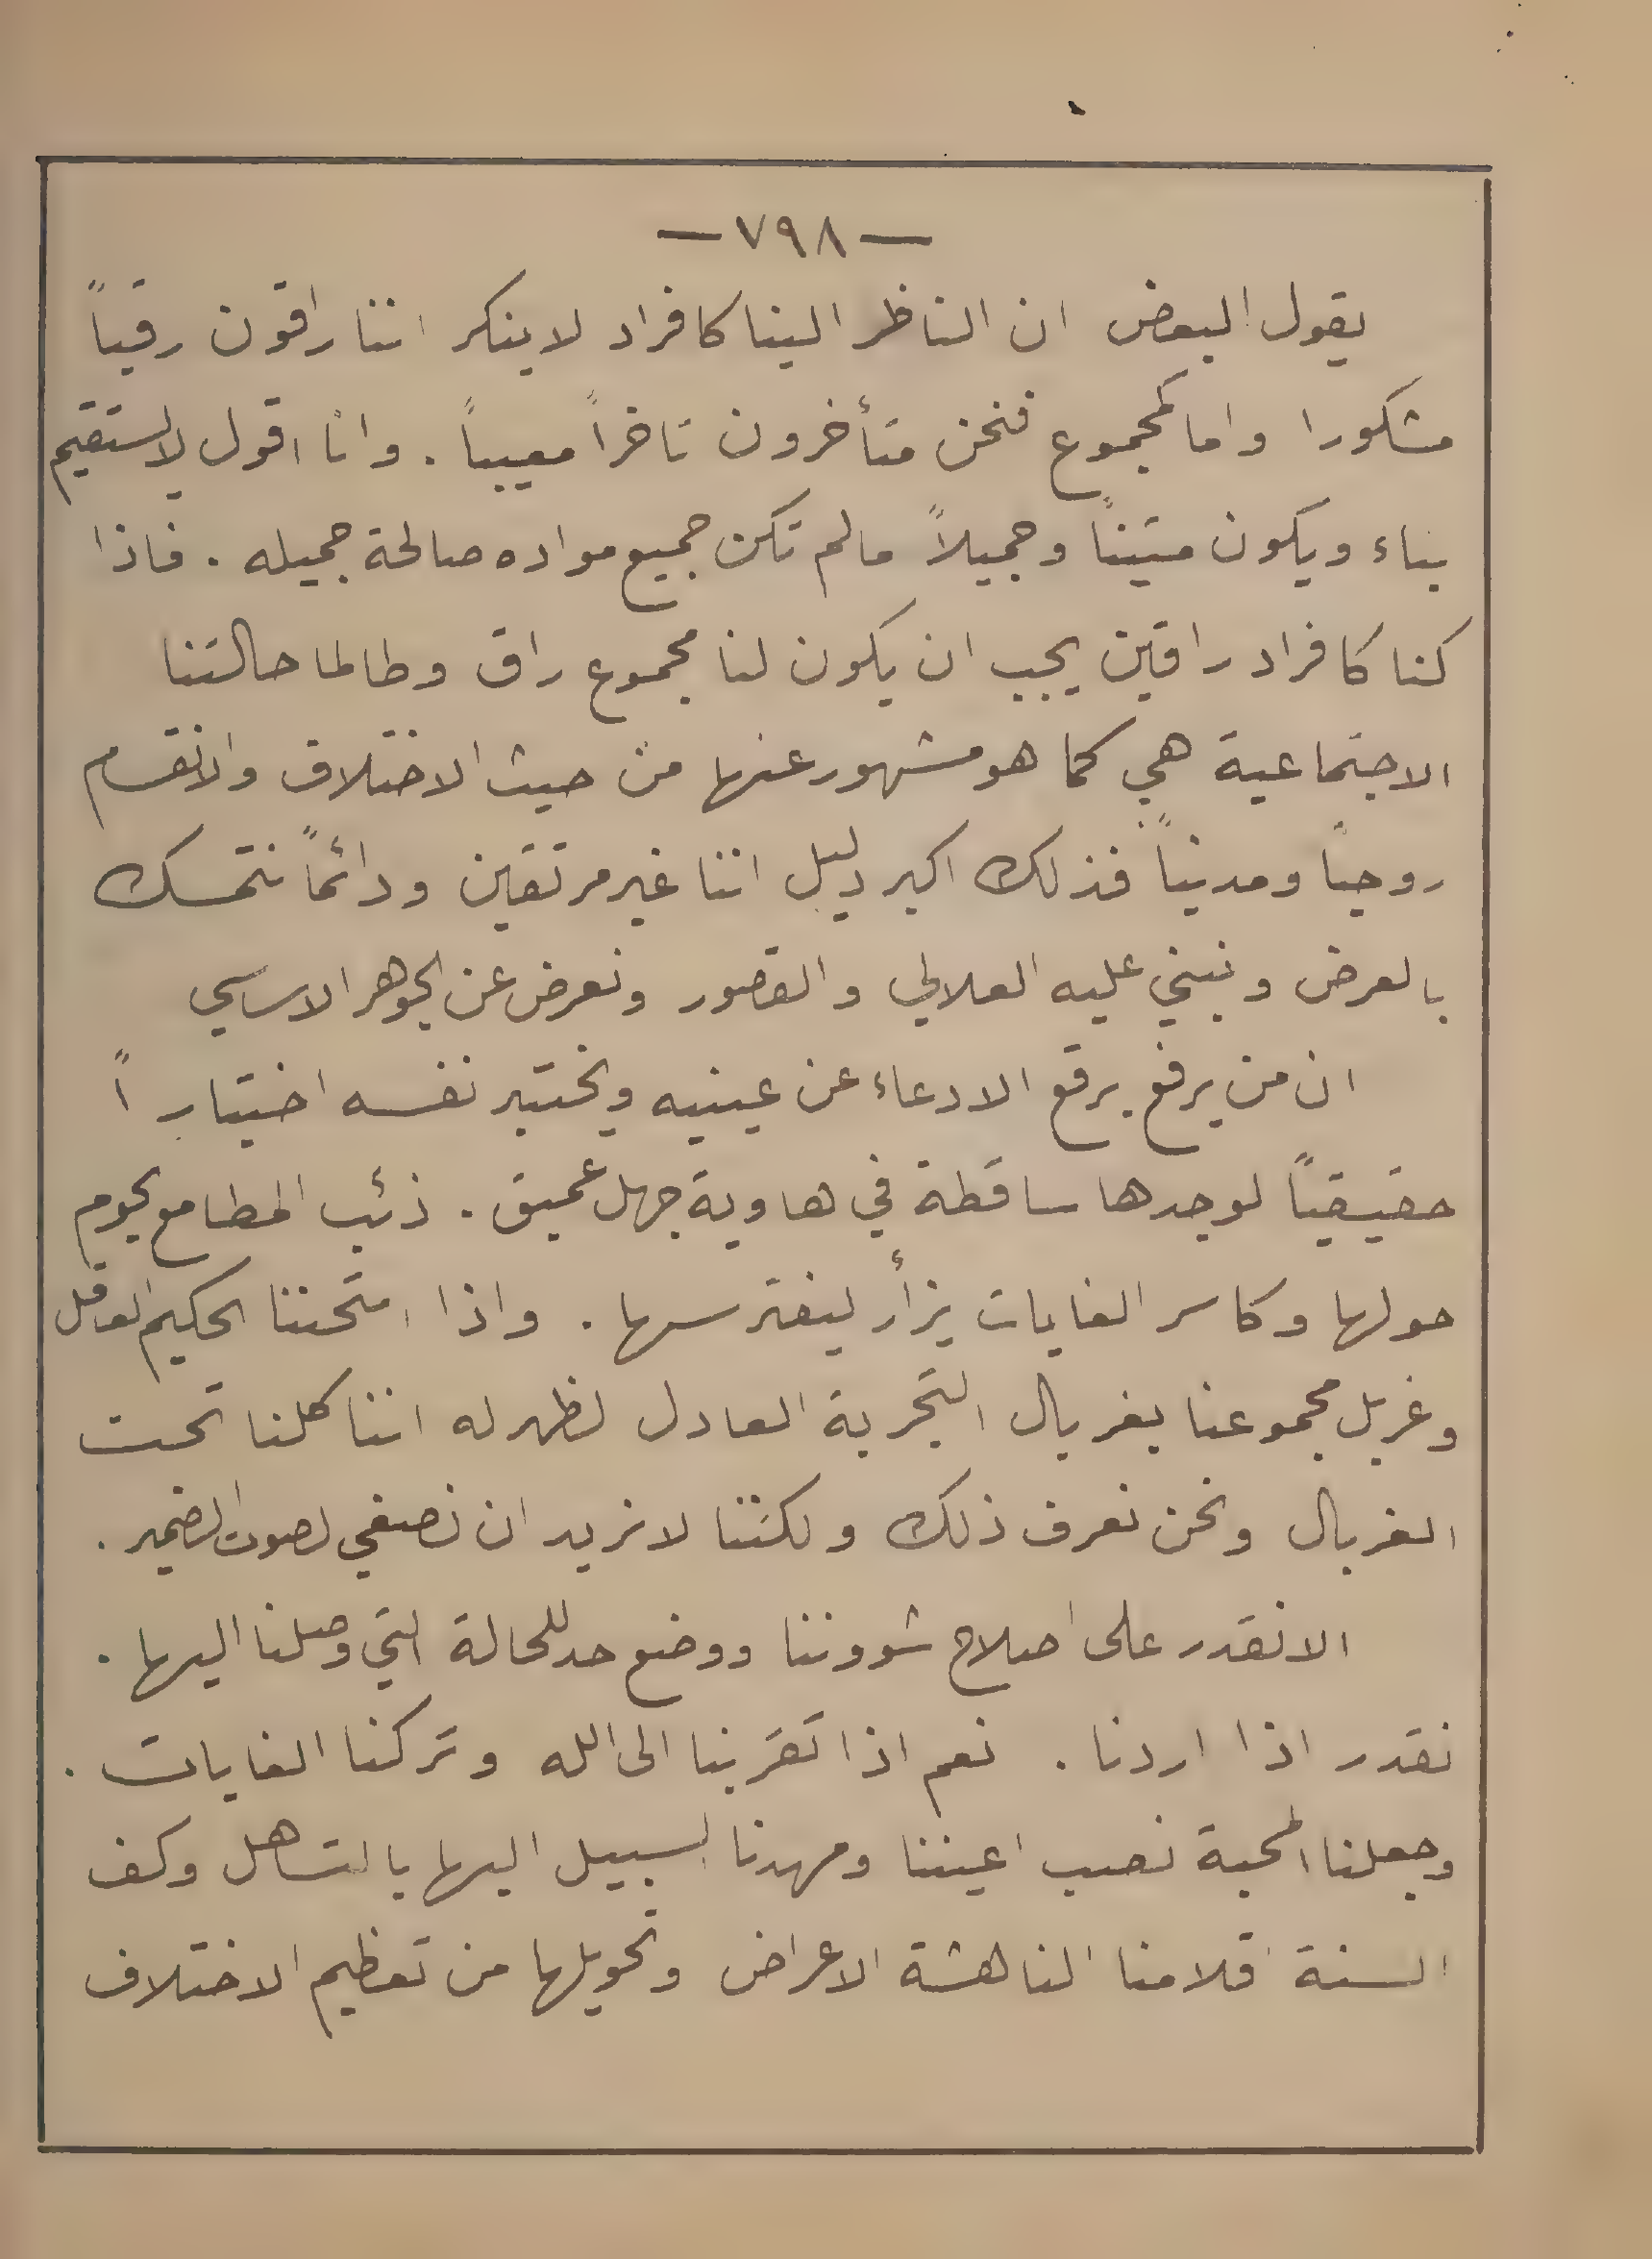 —٧٩٨—
يقول البعض ان الناظر الينا كافراد لا ينكر اننا راقون رقياً
مشكورا واما كمجموع فنحن متأخرون تاخراً معيباً . وانا اقول لا يستقيم
بناء ويكون متيناً وجميلاً ما لم تكن جميع مواده صالحة جميله . فاذا
كنا كافراد راقين يجب ان يكون لنا مجموع راق وطالما حالتنا
الاجتماعية هي كما هو مشهور عنها من حيث الاختلاف والانقسام
روحياً ومدنياً فذلك اكبر دليل اننا غير مرتقين ودائماً نتمسك
بالعرض ونبني عليه العلالي والقصور ونعرض عن الجوهر الاساسي
ان من يرفع برقع الادعاء عن عينيه ويختبر نفسه اختباراً
حقيقياً لوجدها ساقطة في هاوية جهل عميق . ذئب المطامع يحوم
حولها وكاسر الغايات يزأر ليفترسها . واذا امتحننا الحكيم العاقل
وغربل مجموعنا بغربال التجربة العادل لظهر له اننا كلنا تحت
الغربال ونحن نعرف ذلك ولكننا لا نريد ان نصغي لصوت الضمير .
الا نقدر على اصلاح شووننا ووضع حد للحالة التي وصلنا اليها .
نقدر اذا اردنا . نعم اذا تقربنا الى الله وتركنا الغايات .
وجعلنا المحبة نصب اعيننا ومهدنا السبيل اليها بالتساهل وكف
السنة اقلامنا الناهشة الاعراض وتحويلها من تعظيم الاختلاف